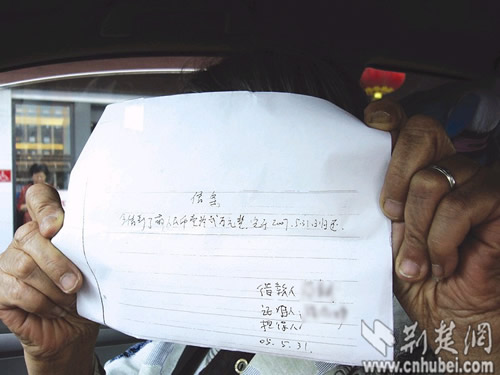 借条
今借到了前人民币壹拾贰万元整,定于2007.5.31日归还.
借款人
证明人:
担保人:
05.5.31.
荆楚网
www.cnhubei.com